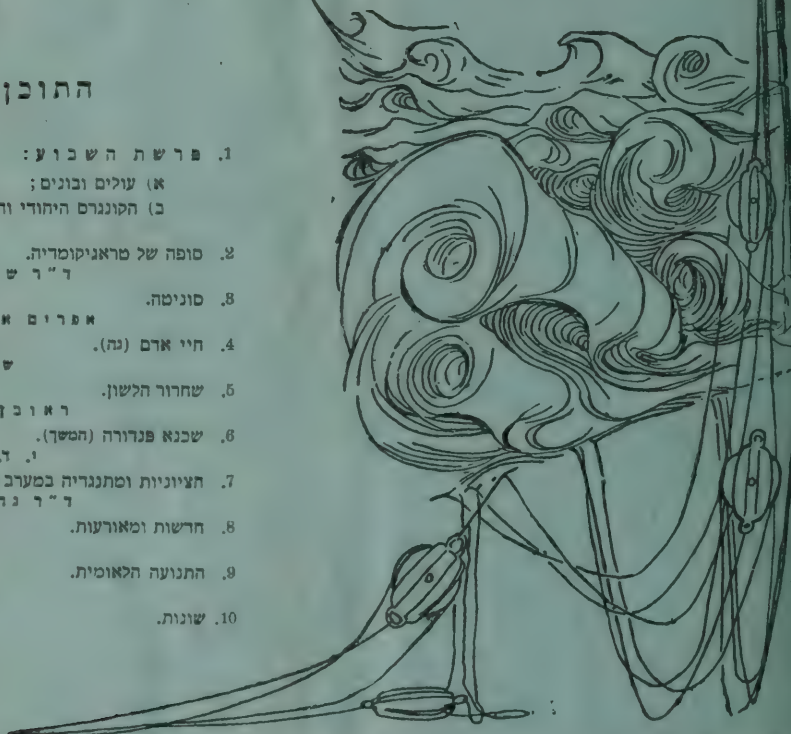 התוכן
1. פרשת השבוע:
א) עולים ובונים;
ב) הקונגרס היהודי
2. סופה של טראגיקומדיה.
ד"ר
3. סוניטה.
אפרים
4. חיי אדם (נה).
5. שחרור הלשון.
ראובן
6. שכנא פנדורה (המשך).
י.
7. הציוניות ומתנגדיה במערב
ד"ר
8. חדשות ומאורעות.
9. התנועה הלאומית.
10. שונות.